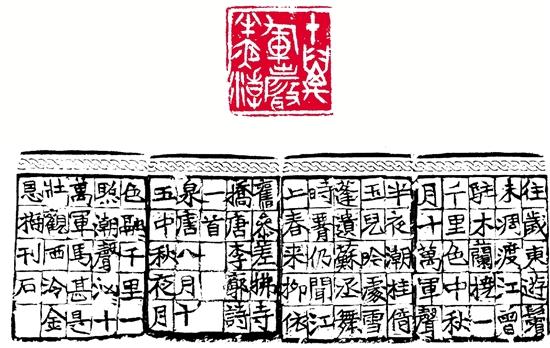 十萬
軍聲
半夜潮
往歲東遊鬢
未凋渡江曾
駐木蘭橈一
千里色中秋
月十萬軍聲
半夜潮桂倚
玉兒吟處雪
蓬遺蘇丞舞
時腰仍聞江
上春來柳依
舊參差拂寺
橋唐李廓詩
一首
泉唐八月十
五中秋夜月
色融千里一
照潮聲沁十
萬軍馬甚是
壯觀西泠金
恩楠刊石